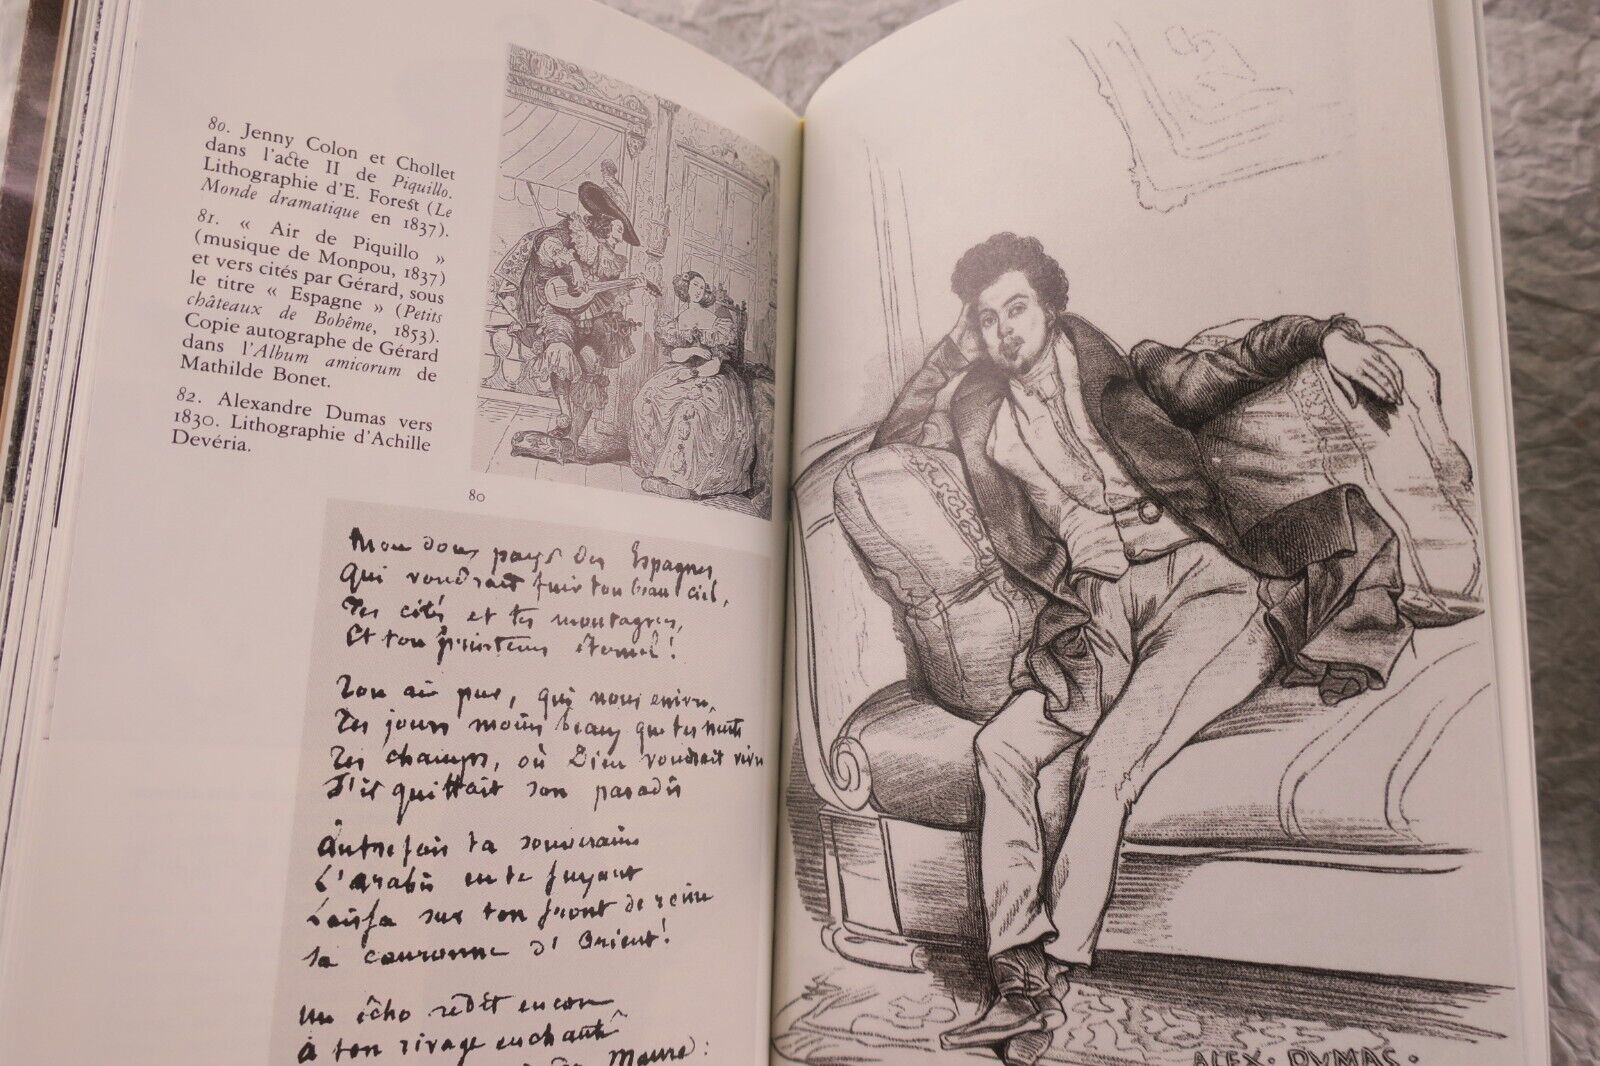 80. Jenny Colon et Chollet
dans l'acte II de Piquillo.
Lithographie d'E. Forest (Le
Monde dramatique en 1837).
81. « Air de Piquillo »
(musique de Monpou, 1837)
et vers cités par Gérard, sous
le titre « Espagne » (Petits
châteaux de Bohême, 1853).
Copie autographe de Gérard
dans l'Album amicorum de
Mathilde Bonet.
82. Alexandre Dumas vers
1830. Lithographie d'Achille
Devéria.
80
Mon doux pays des Espagnes
Qui voudrait fuir ton beau ciel,
Tes cités et tes montagnes,
Et ton printems éternel !
Ton air pur, qui nous enivre,
Tes jours moins beaux que tes nuits
Tes champs, où Dieu voudrait vivre
S'il quittait son paradis
Autrefois ta souveraine
L'arabie en te fuyant
Laissa sur ton front de reine
Sa couronne d'Orient !
Un écho redit encore
à ton rivage enchanté
Maure :
ALEX · DVMAS ·